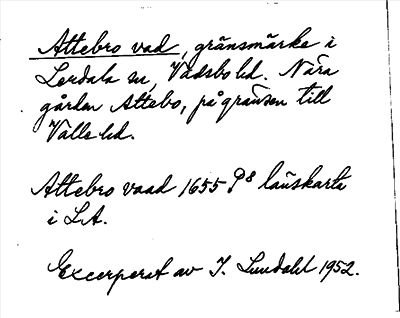 Attebro vad, gränsmärke i
Lerdala sn, Vadsbo hd. Nära
gården Attebo, på gränsen till
Valle hd.
Attebro vaad 1655 P8 länskarta
i LA.
Excerperat av I. Lundahl 1952.